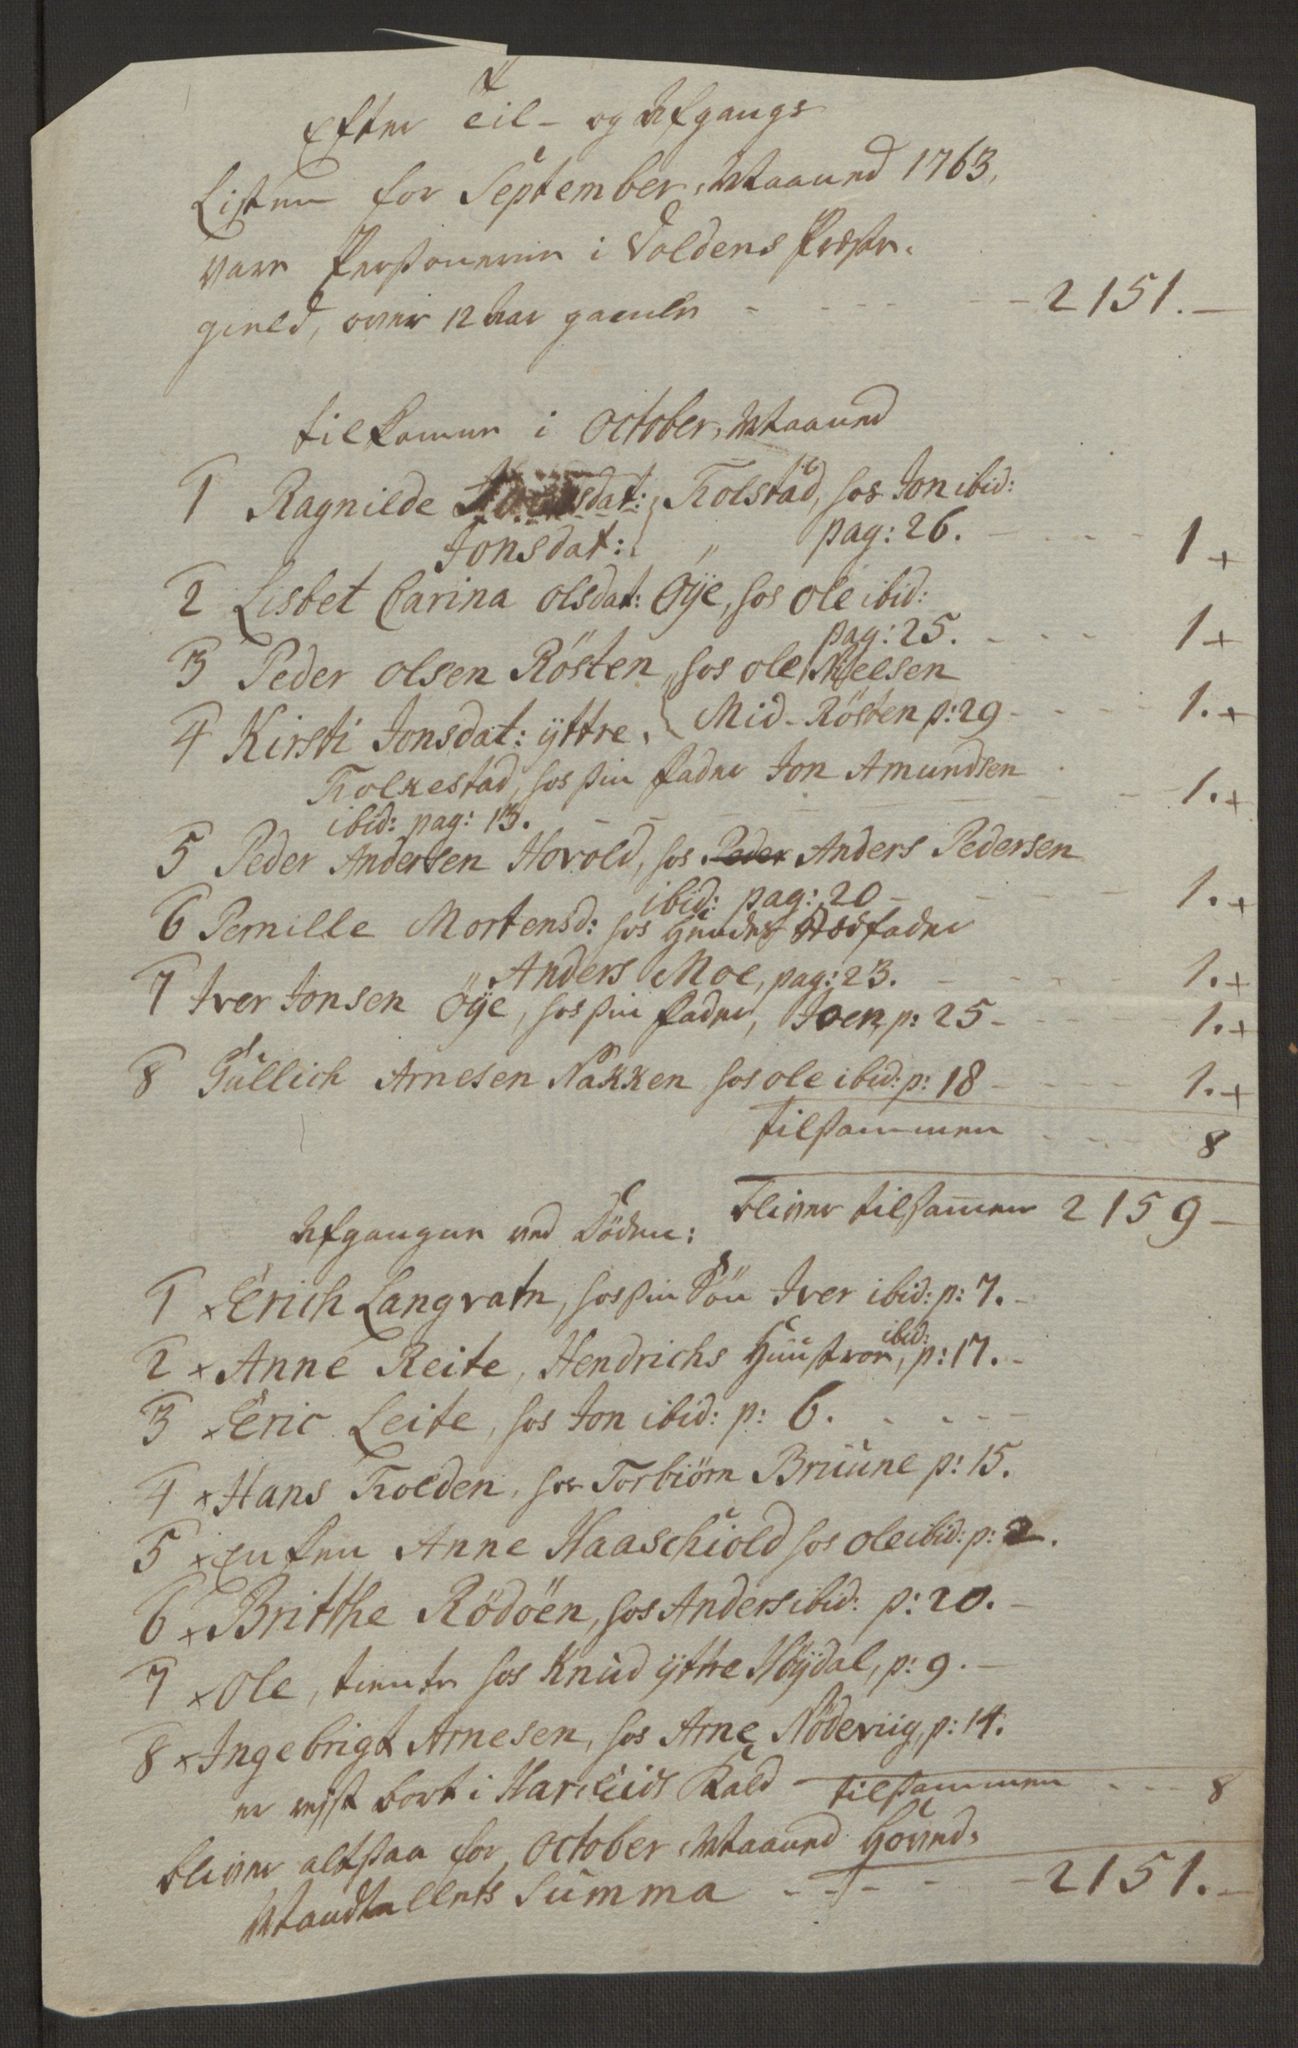 Efter Til- og Afgangs
Listen for September, Maaned 1763,
vare Personerne i Voldens Præste-
gield, over 12 Aar gamle - - - - - 2151.-
tilkomne i October, Maaned
1 Ragnilde Jonsdat: Folstad, hos Jon ibid:
Jonsdat: " pag: 26. - - - - 1 +
2 Lisbet Carina Olsdat: Öÿe, hos Ole ibid:
pag: 25. - - - 1 +
3 Peder Olsen Rösten, hos Ole Nielsen
Mid-Rösten p: 29 - - - - 1. +
4 Kirsti Jonsdat: ÿttre,
Folkestad, hos sin Fader Jon Amundsen
ibid: pag: 13. - - - - - 1. +
5 Peder Andersen Hovold, hos Peder Anders Pedersen
ibid: pag: 20 - - - - 1. +
6 Pernille Mortensd: hos hendes Stedfader
Anders Moe, pag: 23. - - - - 1. +
7 Iver Jonsen Öÿe, hos sin Fader, Joen p: 25 - - - 1. +
8 Gullich Arnesen Nakken hos Ole ibid: p: 18 - - - - 1. +
tilsammen - - - - 8
bliver tilsamen 2159 -
Afgangne ved Döden:
1 x Erich Langvatn, hos sin Sön Iver ibid: p: 7. -
2 x Anne Reite, Hendrichs Huustroe, ibid: p: 17. -
3 x Eric Leite, hos Jon ibid: p: 6. - - - -
4 x Hans Folden, hos Torbiörn Bruune p: 15.
5 x Enken Anne Haaschiold hos Ole ibid: p: 2.
6 x Britthe Rödöen, hos Anders ibid: p: 20. -
7 x Ole, tiente hos Knud ÿttre Höÿdal, p: 9. -
8 x Ingebrigt Arnesen, hos Arne Nödeviig, p: 14.
er rejst bort i Hareids Kald tilsammen - - - 8
bliver altsaa for October, Maaned Hoved-
Mandtallets Summa - - - - - 2151. -